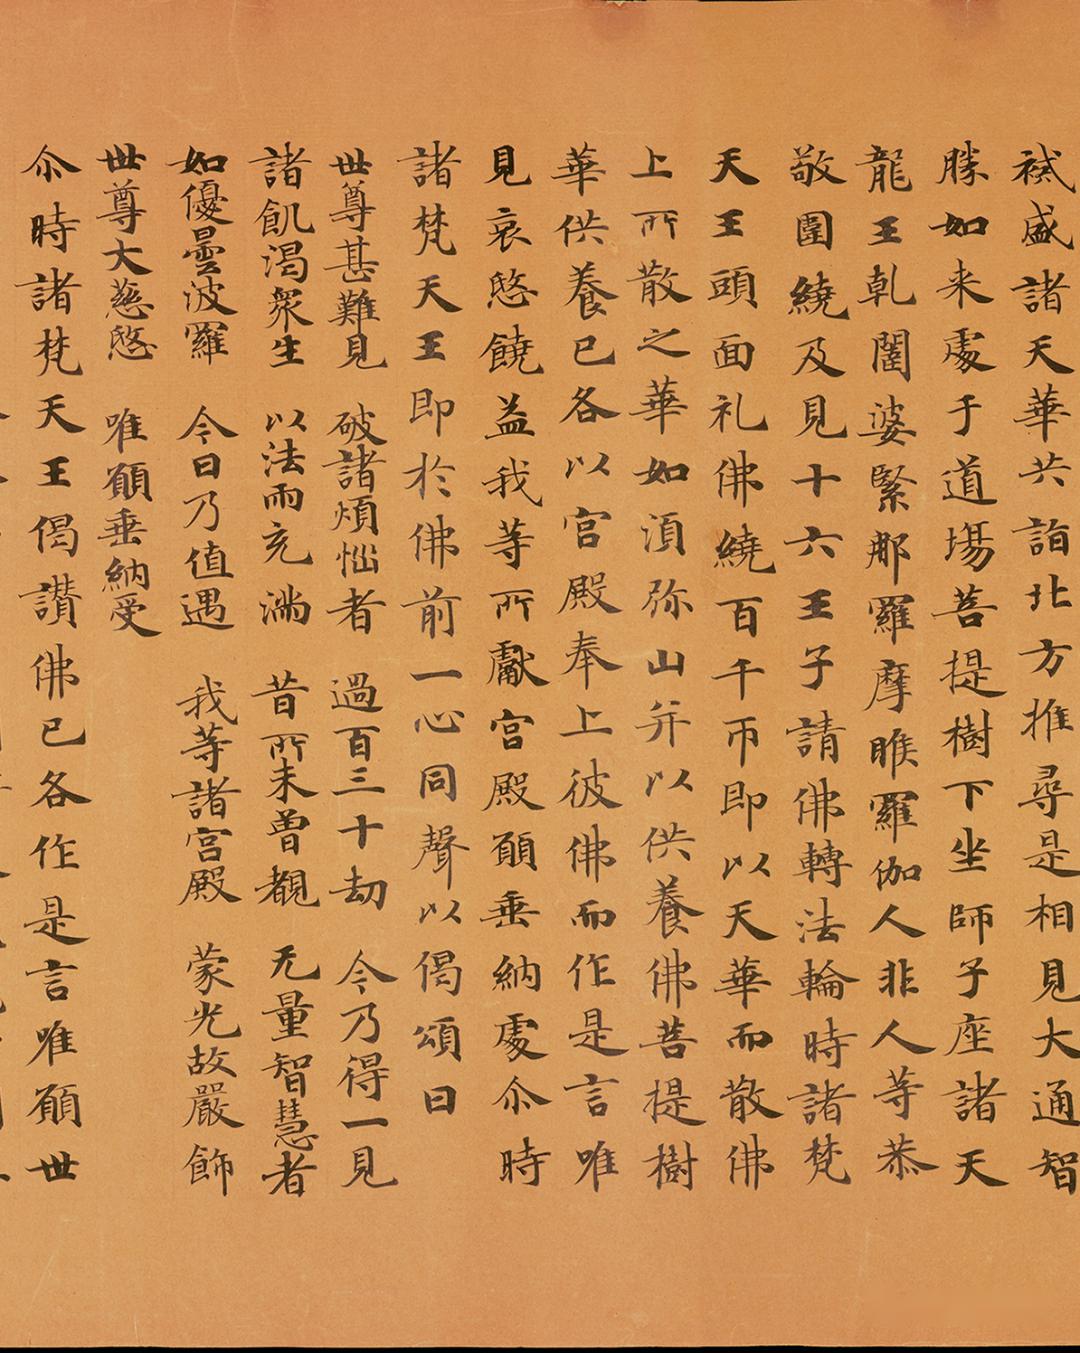 裓盛諸天華共詣北方推尋是相見大通智
勝如来處于道場菩提樹下坐師子座諸天
龍王乹闥婆緊那羅摩睺羅伽人非人等恭
敬圍繞及見十六王子請佛轉法輪時諸梵
天王頭面礼佛繞百千帀即以天華而散佛
上所散之華如湏弥山并以供養佛菩提樹
華供養已各以宮殿奉上彼佛而作是言唯
見哀愍饒益我等所獻宮殿願垂納處尒時
諸梵天王即於佛前一心同聲以偈頌曰
世尊甚難見 破諸煩惱者 過百三十劫 今乃得一見
諸飢渴衆生 以法雨充滿 昔所未曽覩 无量智慧者
如優曇波羅 今日乃值遇 我等諸宮殿 蒙光故嚴飾
世尊大慈愍 唯願垂納受
尒時諸梵天王偈讃佛已各作是言唯願世